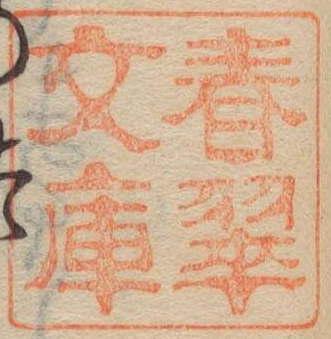 春翠
文庫